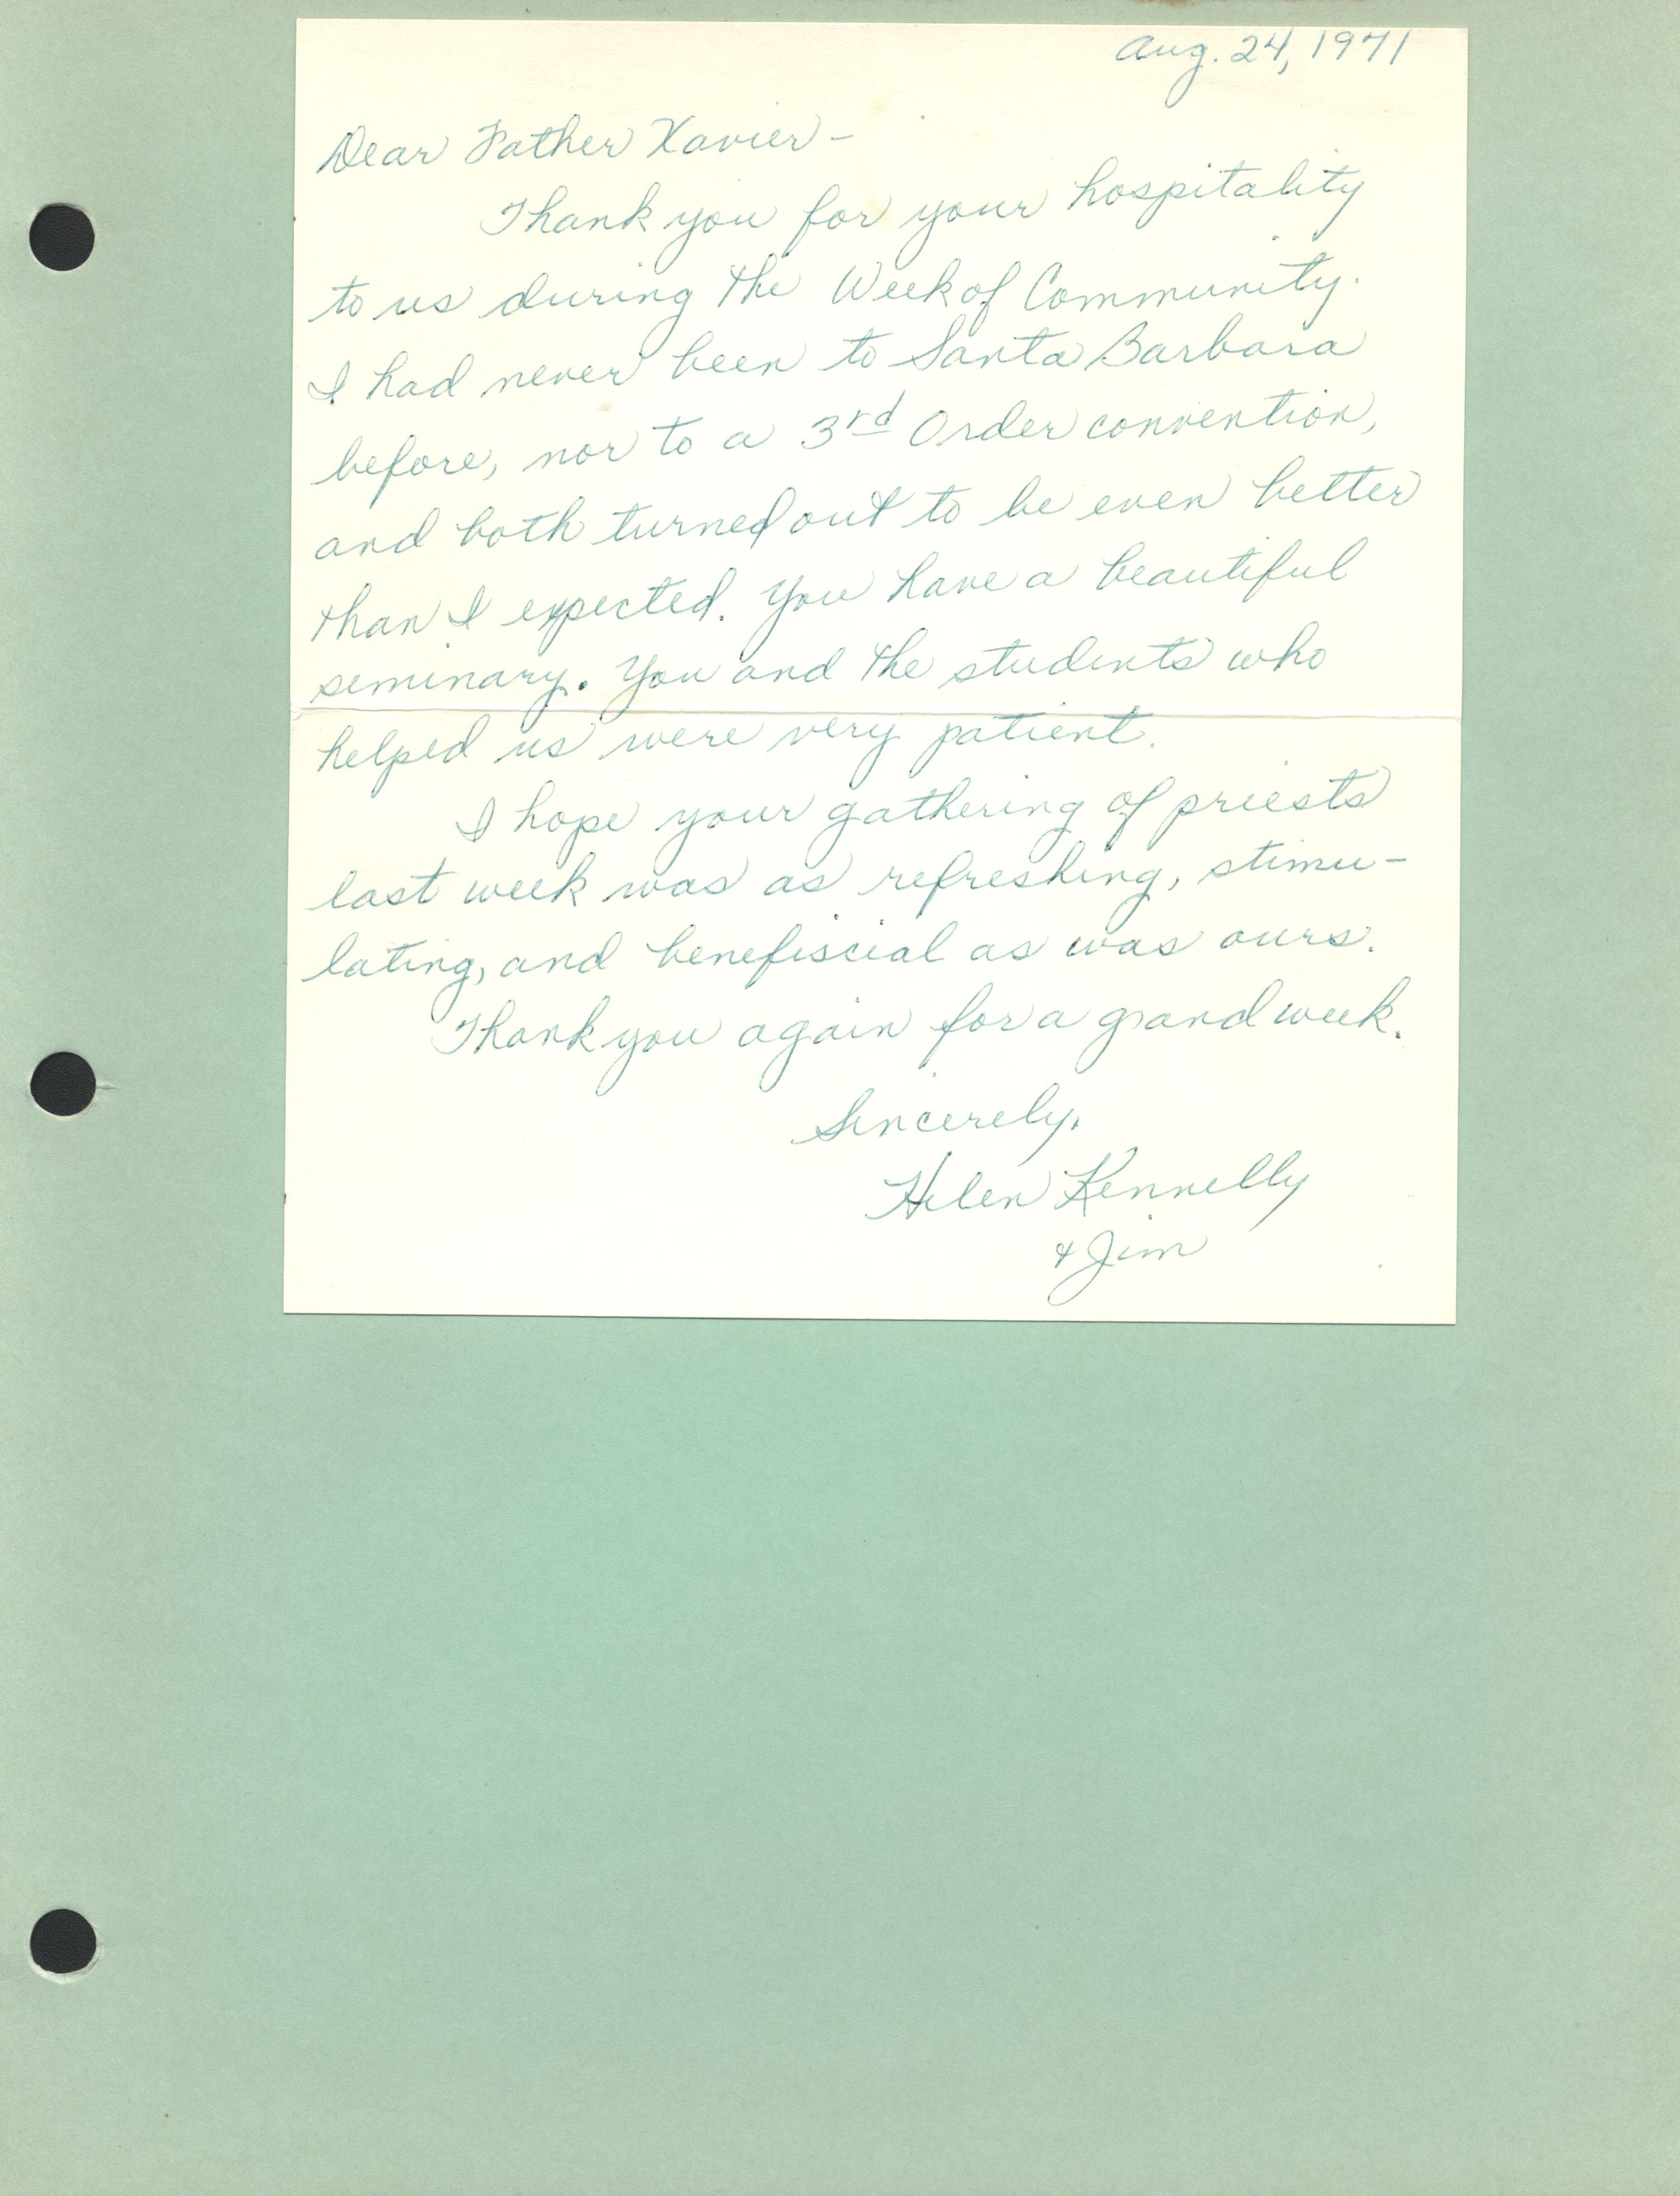 Aug. 24, 1971
Dear Father Xavier -
Thank you for your hospitality
to us during the Week of Community.
I had never been to Santa Barbara
before, nor to a 3rd Order convention,
and both turned out to be even better
than I expected. You have a beautiful
seminary. You and the students who
helped us were very patient.
I hope your gathering of priests
last week was as refreshing, stimu-
lating, and benefiscial as was ours.
Thank you again for a grand week.
Sincerely,
Helen Kennelly
& Jim